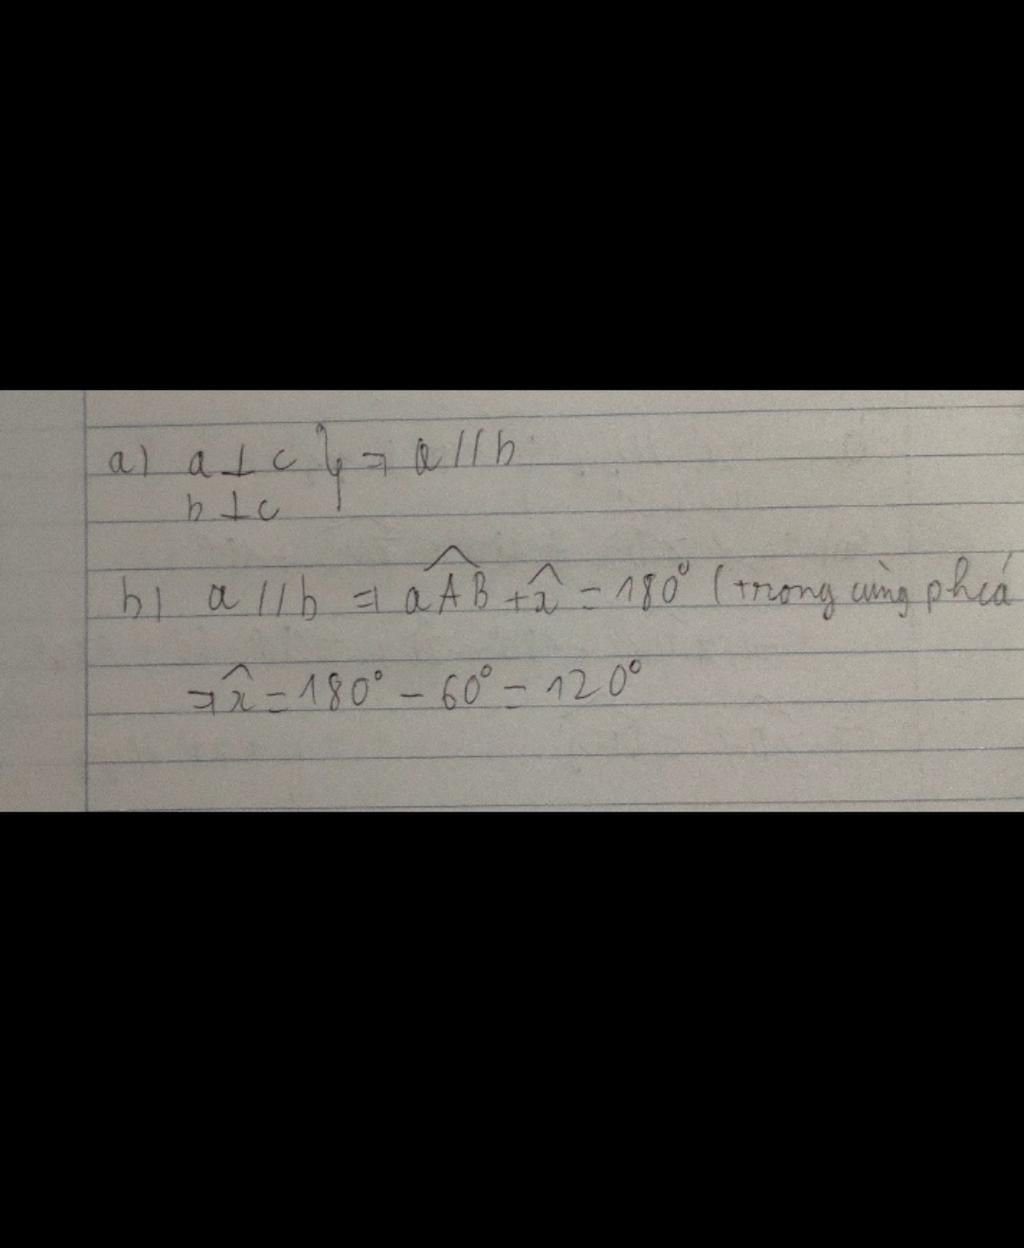 a) a ⊥ c } ⇒ a // b
b ⊥ c
b) a // b ⇒ \widehat{aAB} + \widehat{x} = 180° (trong cùng phía
⇒ \widehat{x} = 180° - 60° = 120°